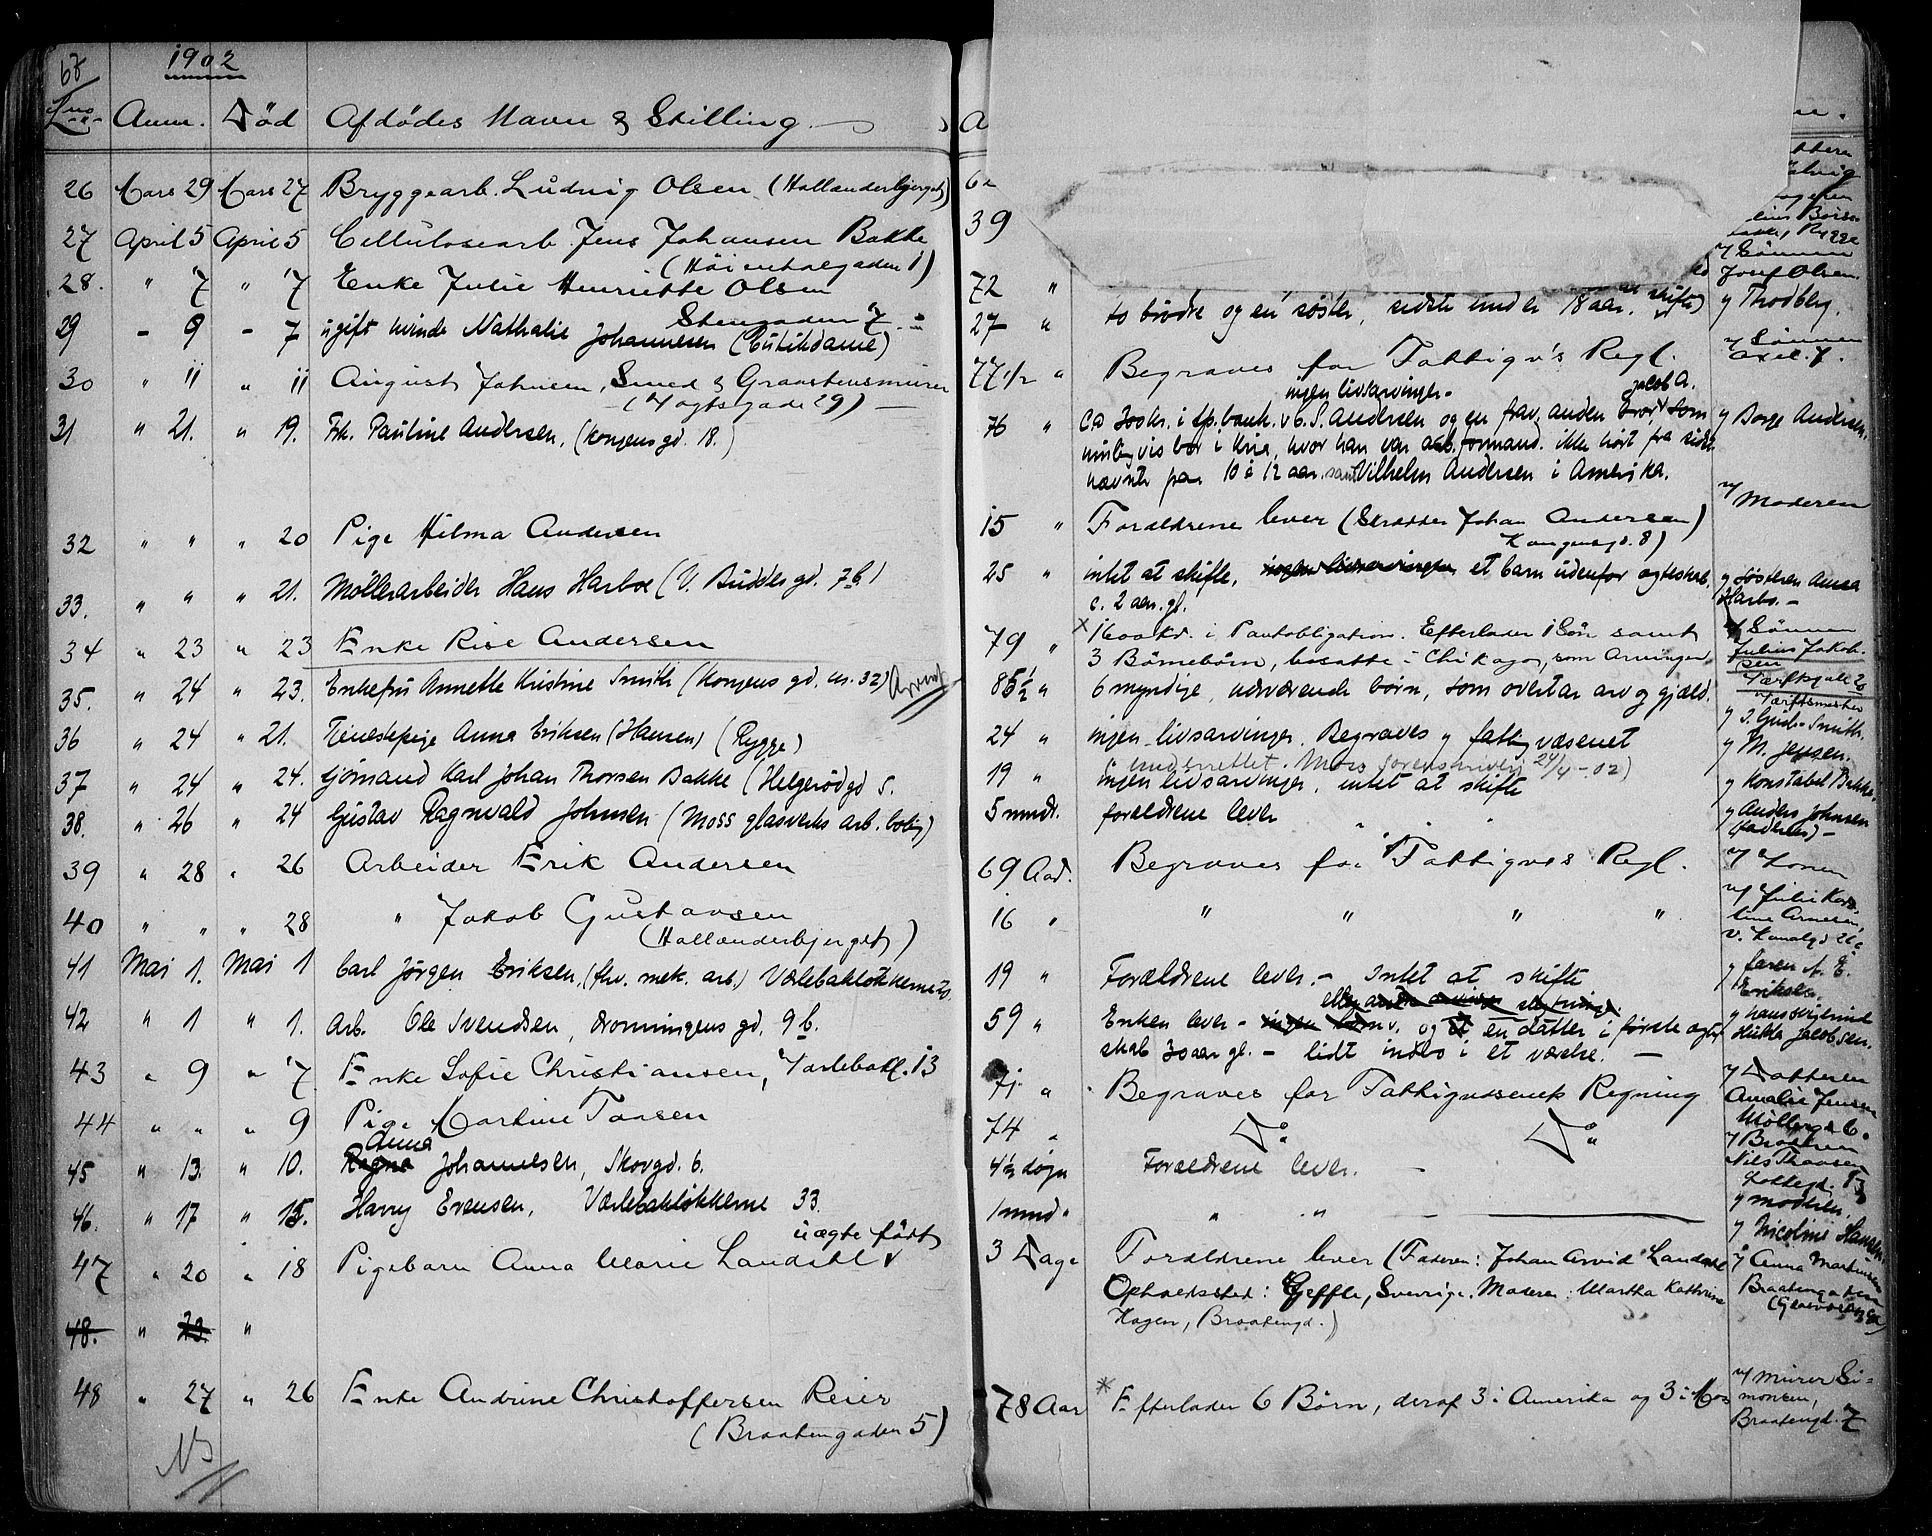 67
1902
Lno Anm. Død Afdødes Navn & Stilling A
26 Mars 29 Mars 27 Bryggearb. Ludvig Olsen (Hollænderbjerget) 6
27 April 5 April 5 Cellulosearb. Jens Johansen Bakke 39
(Höienhalgaden 1)
28. " 7 " 7 Enke Julie Henriette Olsen 72 " Josef Olsen.
Stengaden 7.
29 - 9 - 7 ugift kvinde Nathalie Johannesen (Butikdame) 27 " to brødre og en søster, sidste under 18 aar. skifte) v/ Thodberg.
30 " 11 " 11 August Johnsen, Smed & Graastensmurer 77 1/2 " Begraves for Fattigv's Regl. v/ Sønnen Axel J.
(Vogtsgade 29)
ingen livsarvinger. Jacob A.
31 " 21. " 19. Frk. Pauline Andersen, (Kongensgd. 18.) 76 " Ca 300 kr. i Sp.bank. v C. S. Andersen og en frav. anden bror, som v/ Borge Andersen.
minligvis bor i Kria, hvor han var arb.formand. ikke hørt fra sidst
nævnte paa 10 à 12 aar. samt Vilhelm Andersen i Amerika.
32 " " " 20 Pige Hilma Andersen 15 " Forældrene lever (Skrædder Johan Andersen) v/ Moderen
Kongensgd. 8)
33. " " " 21. Møllerarbeider Hans Harboe (V. Buddesgd. 7b.) 25 " intet at skifte, ingen livsarvinger et barn udenfor ægteskab v/ søsteren Anna
c. 2 aar. gl. Harbo. -
34 " 23 " 23 Enke Rise Andersen 79 " x 1600 kr. i Pantobligation. Efterlader 1 Søn samt v/ Sønnen
3 Börnebörn, bosatte i Chikago, som Arvinger Julius Jakobsen
35. " 24 " 23. Enkefru Annette Kristine Smith (Kongens gd. nr. 32) 85 1/2 " 6 myndige, nærværende børn, som overtar arv og gjæld.
v/ S. Gust. Smith.
36 " 24 " 21. Tjenestepige Anna Eriksen (Hansen) (Rygge) 24 " ingen livsarvinger. Begraves v/ fattigvæsenet v/ M. Jensen.
underrettet. Moss Sorenskriveri 24/4-02)
37 " 24 " 24. Sjømand Karl Johan Thorsen Bakke (Helgerødgd 5. 19 " ingen livsarvinger, intet at skifte v/ Konstabel Bakke
38. " 26 " 24 Gustav Ragnvald Johnsen (Moss glasverks arb. bolig) 5 mndr. forældrene lever v/ Anders Johnsen
(faderen) -
39 " 28 " 26 Arbeider Erik Andersen 69 Aar. Begraves for Fattigvæs Regl. v/ Konen
40 " " " 28 " Jakob Gustavsen 16 " " " " " v/ Julie Karoline Arnesen,
(Hollænderbjerget) v. Kanalgd 26
41 Mai 1. Mai 1 Carl Jørgen Eriksen, (fhv. mek. arb.) Værlebakløkkerne 19 " Forældrene lever. - Intet at skifte v/ faren A. E. Eriksen.
42 " 1 " 1. Arb. Ole Svendsen, Dronningens gd. 9b. 59 " Enken lever - ingen børn, og en datter i første ægte v/ hans svigerinde
skab 30 aar gl. - lidt indbo i et værelse. - Hulda Jacobsen.
43 " 9 " 7 Enke Sofie Christiansen, Varlebakl. 13 71. " Begraves for Fattigvæsenets Regning v/ Datteren
Amalie Jensen
44 " " " 9 Pige Martine Taasen 74 " Do Do v/ Broderen
Nils Thaasen
Anna
45 " 13. " 10. Ragna Johannesen, Skovgd. 6. 4 1/2 døgn Forældrene lever. v/ moderen.
46. " 17 " 15. Harry Evensen, Værlebakløkkerne 33. 1 mnd. " " v/ Nicoline Hansen
uægte født
47 " 20 " 18 Pigebarn Anna Marie Landahl v 3 Dage Forældrene lever (Faderen: Johan Arvid Landahl v/ Anna Martinsen
Opholdssted: Geffle, Sverige. Moderen: Martha Kathrine Braatengaden
Hagen, Braatengd.)
48. " 23. "
48 " 27 " 26 Enke Andrine Christoffersen Reier 78 Aar * Efterlader 6 Børn, deraf 3 i Amerika og 3 i Mos v/ murer Simonsen,
(Braatengaden 5) Braatengd. 7
NB